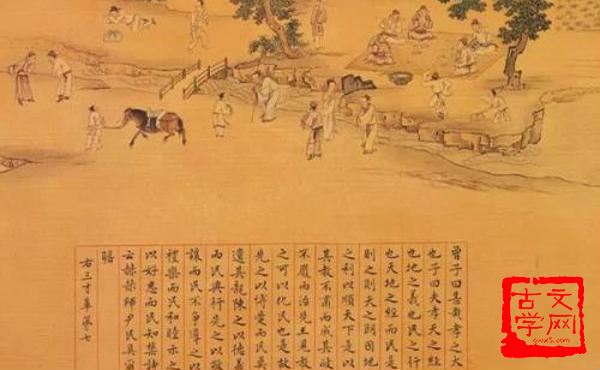 曾子曰甚哉孝之大
也子曰夫孝天之經
也地之義也民之行
也天地之經而民是
則之則天之明因地
之利以順天下是以
其教不肅而成其政
不嚴而治先王見教
之可以化民也是故
先之以博愛而民莫
遺其親陳之以德義
而民興行先之以敬
讓而民不爭導之以
禮樂而民和睦示之
以好惡而民知禁詩
云赫赫師尹民具爾
瞻
右三才章第七
古文
学网